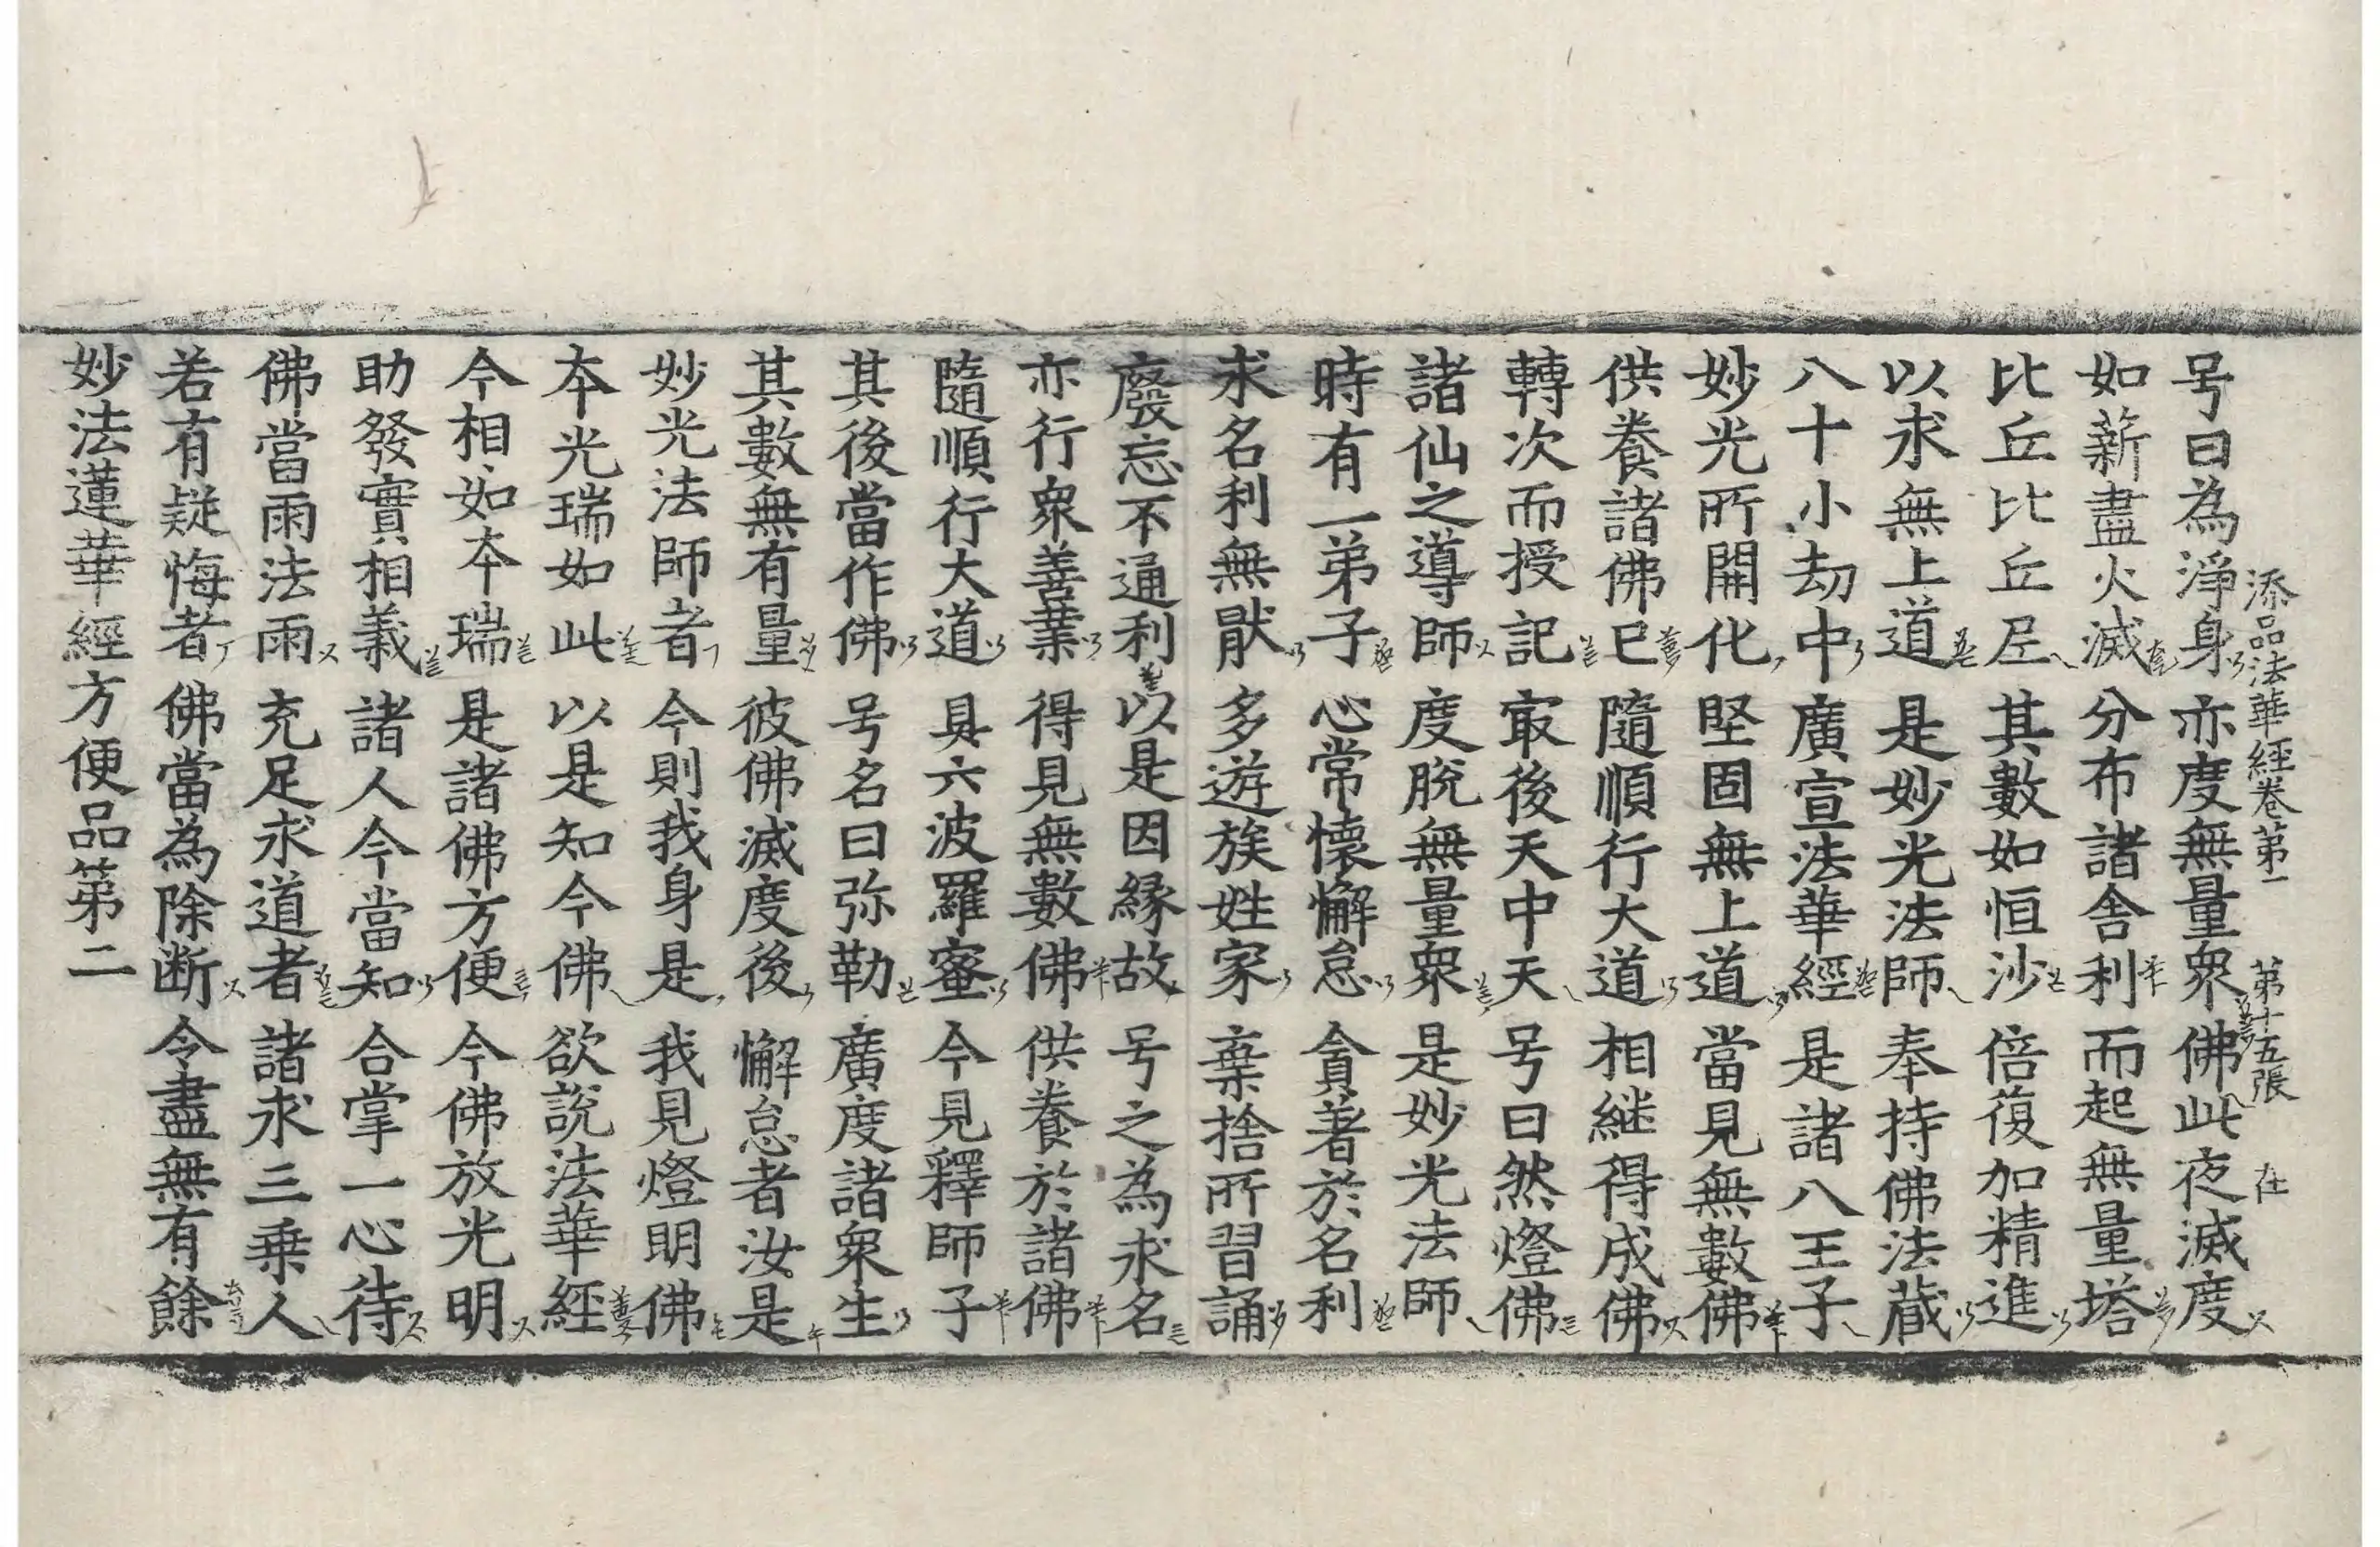 添品法華經卷第一 第十五張 在
号曰為淨身 亦度無量衆 佛此夜滅度
如薪盡火滅 分布諸舎利 而起無量塔
比丘比丘尼 其數如恒沙 倍復加精進
以求無上道 是妙光法師 奉持佛法蔵
八十小劫中 廣宣法華經 是諸八王子
妙光所開化 堅固無上道 當見無數佛
供養諸佛已 隨順行大道 相継得成佛
轉次而授記 㝡後天中天 号曰然燈佛
諸仙之導師 度脫無量衆 是妙光法師
時有一弟子 心常懷懈怠 貪著於名利
求名利無猒 多遊族姓家 棄捨所習誦
廢忘不通利 以是因縁故 号之為求名
亦行衆善業 得見無數佛 供養於諸佛
隨順行大道 具六波羅蜜 今見釋師子
其後當作佛 号名曰弥勒 廣度諸衆生
其數無有量 彼佛滅度後 懈怠者汝是
妙光法師者 今則我身是 我見燈明佛
本光瑞如此 以是知今佛 欲說法華經
今相如本瑞 是諸佛方便 今佛放光明
助發實相義 諸人今當知 合掌一心待
佛當雨法雨 充足求道者 諸求三乗人
若有疑悔者 佛當為除断 令盡無有餘
妙法蓮華經方便品第二